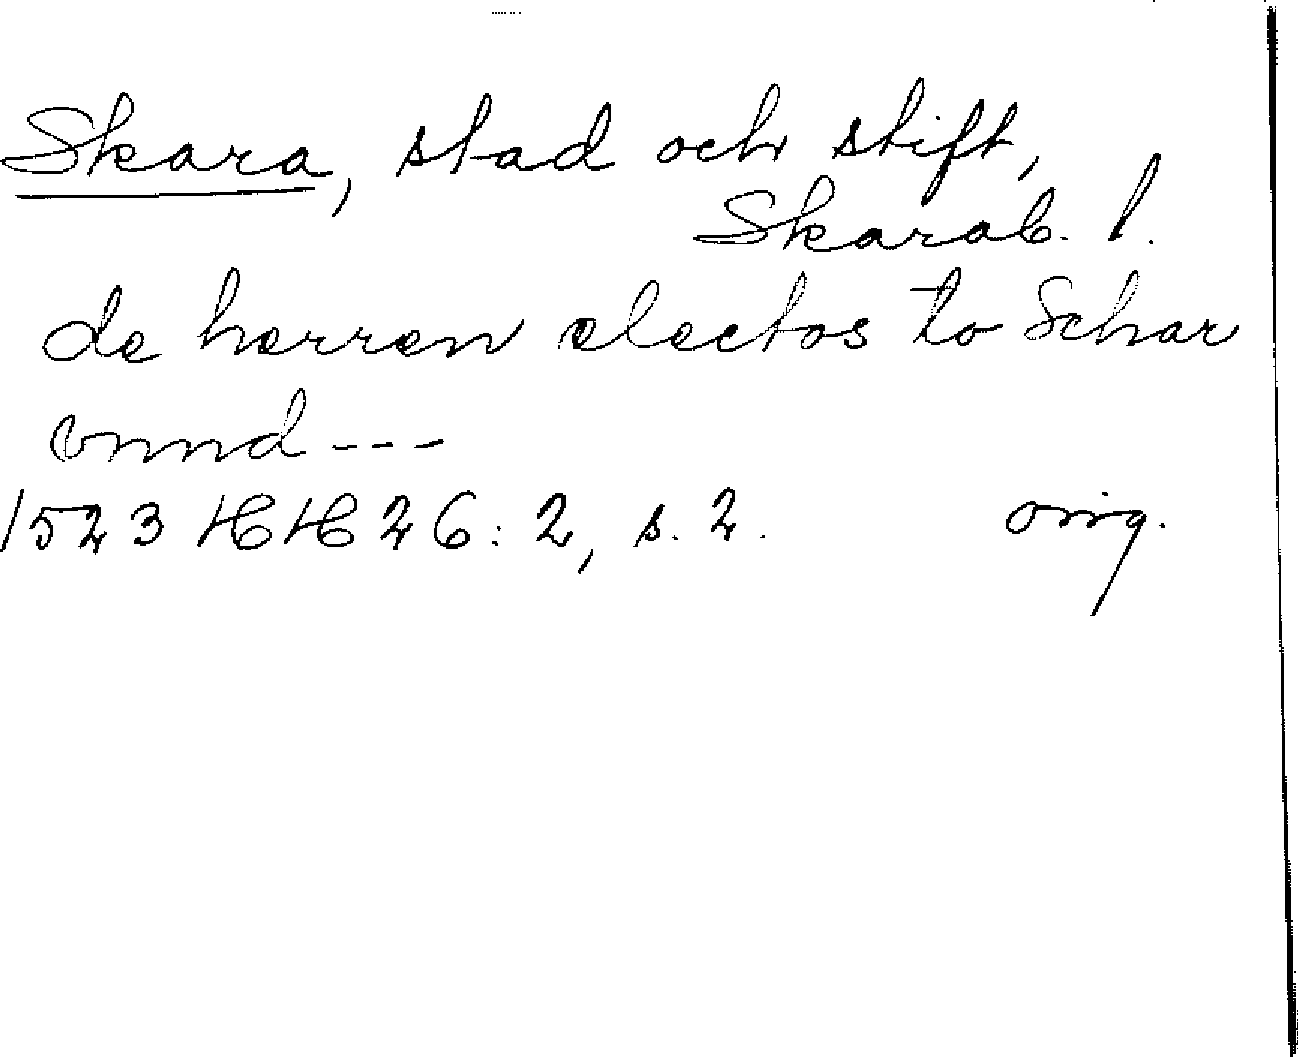 Skara, stad och stift,
Skarab. l.
de herren electos to Schar
vnnd ---
1523 HH 26:2, s. 2. orig.